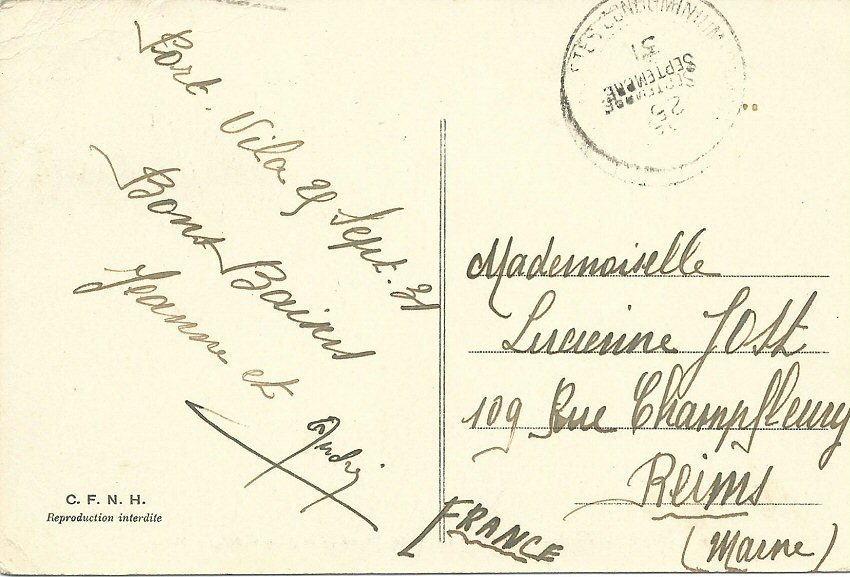 Port. Vila 25 Sept. 31
Bons Baisers
Jeanne et
André
C. F. N. H.
Reproduction interdite
CONDOMINIUM
31
SEPTEMBRE
SEPTEMBRE
25
Mademoiselle
Lucienne Jost
109 Rue Champfleury
Reims
(Marne)
FRANCE